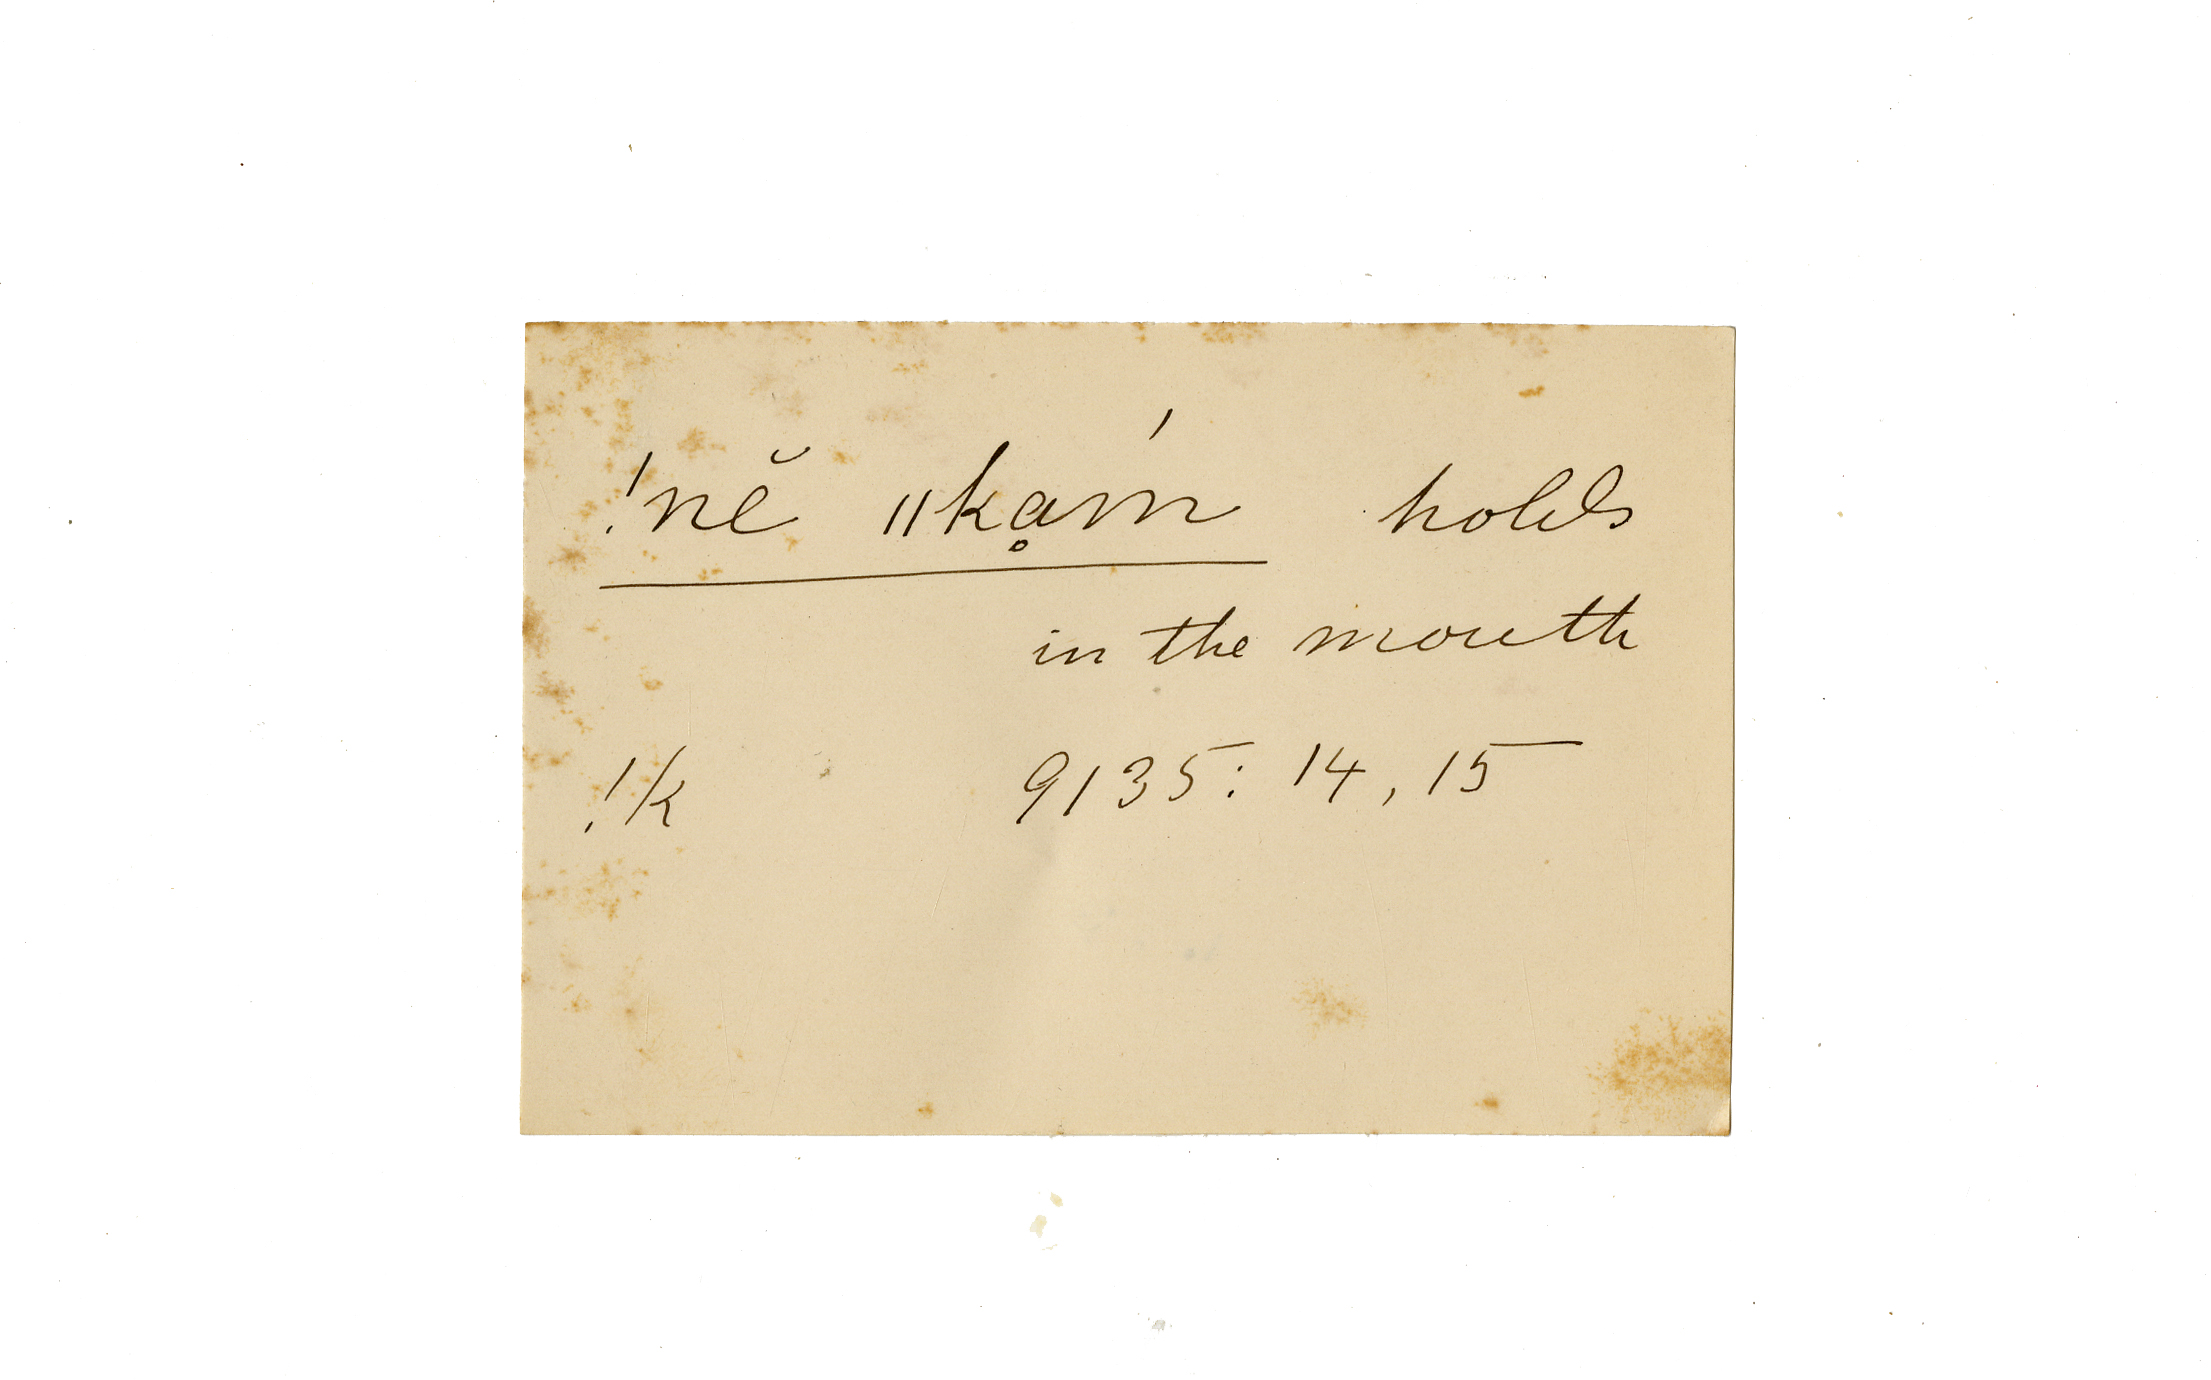 !nĕ ǁkḁḿ holds
in the mouth
!k 9135: 14, 15